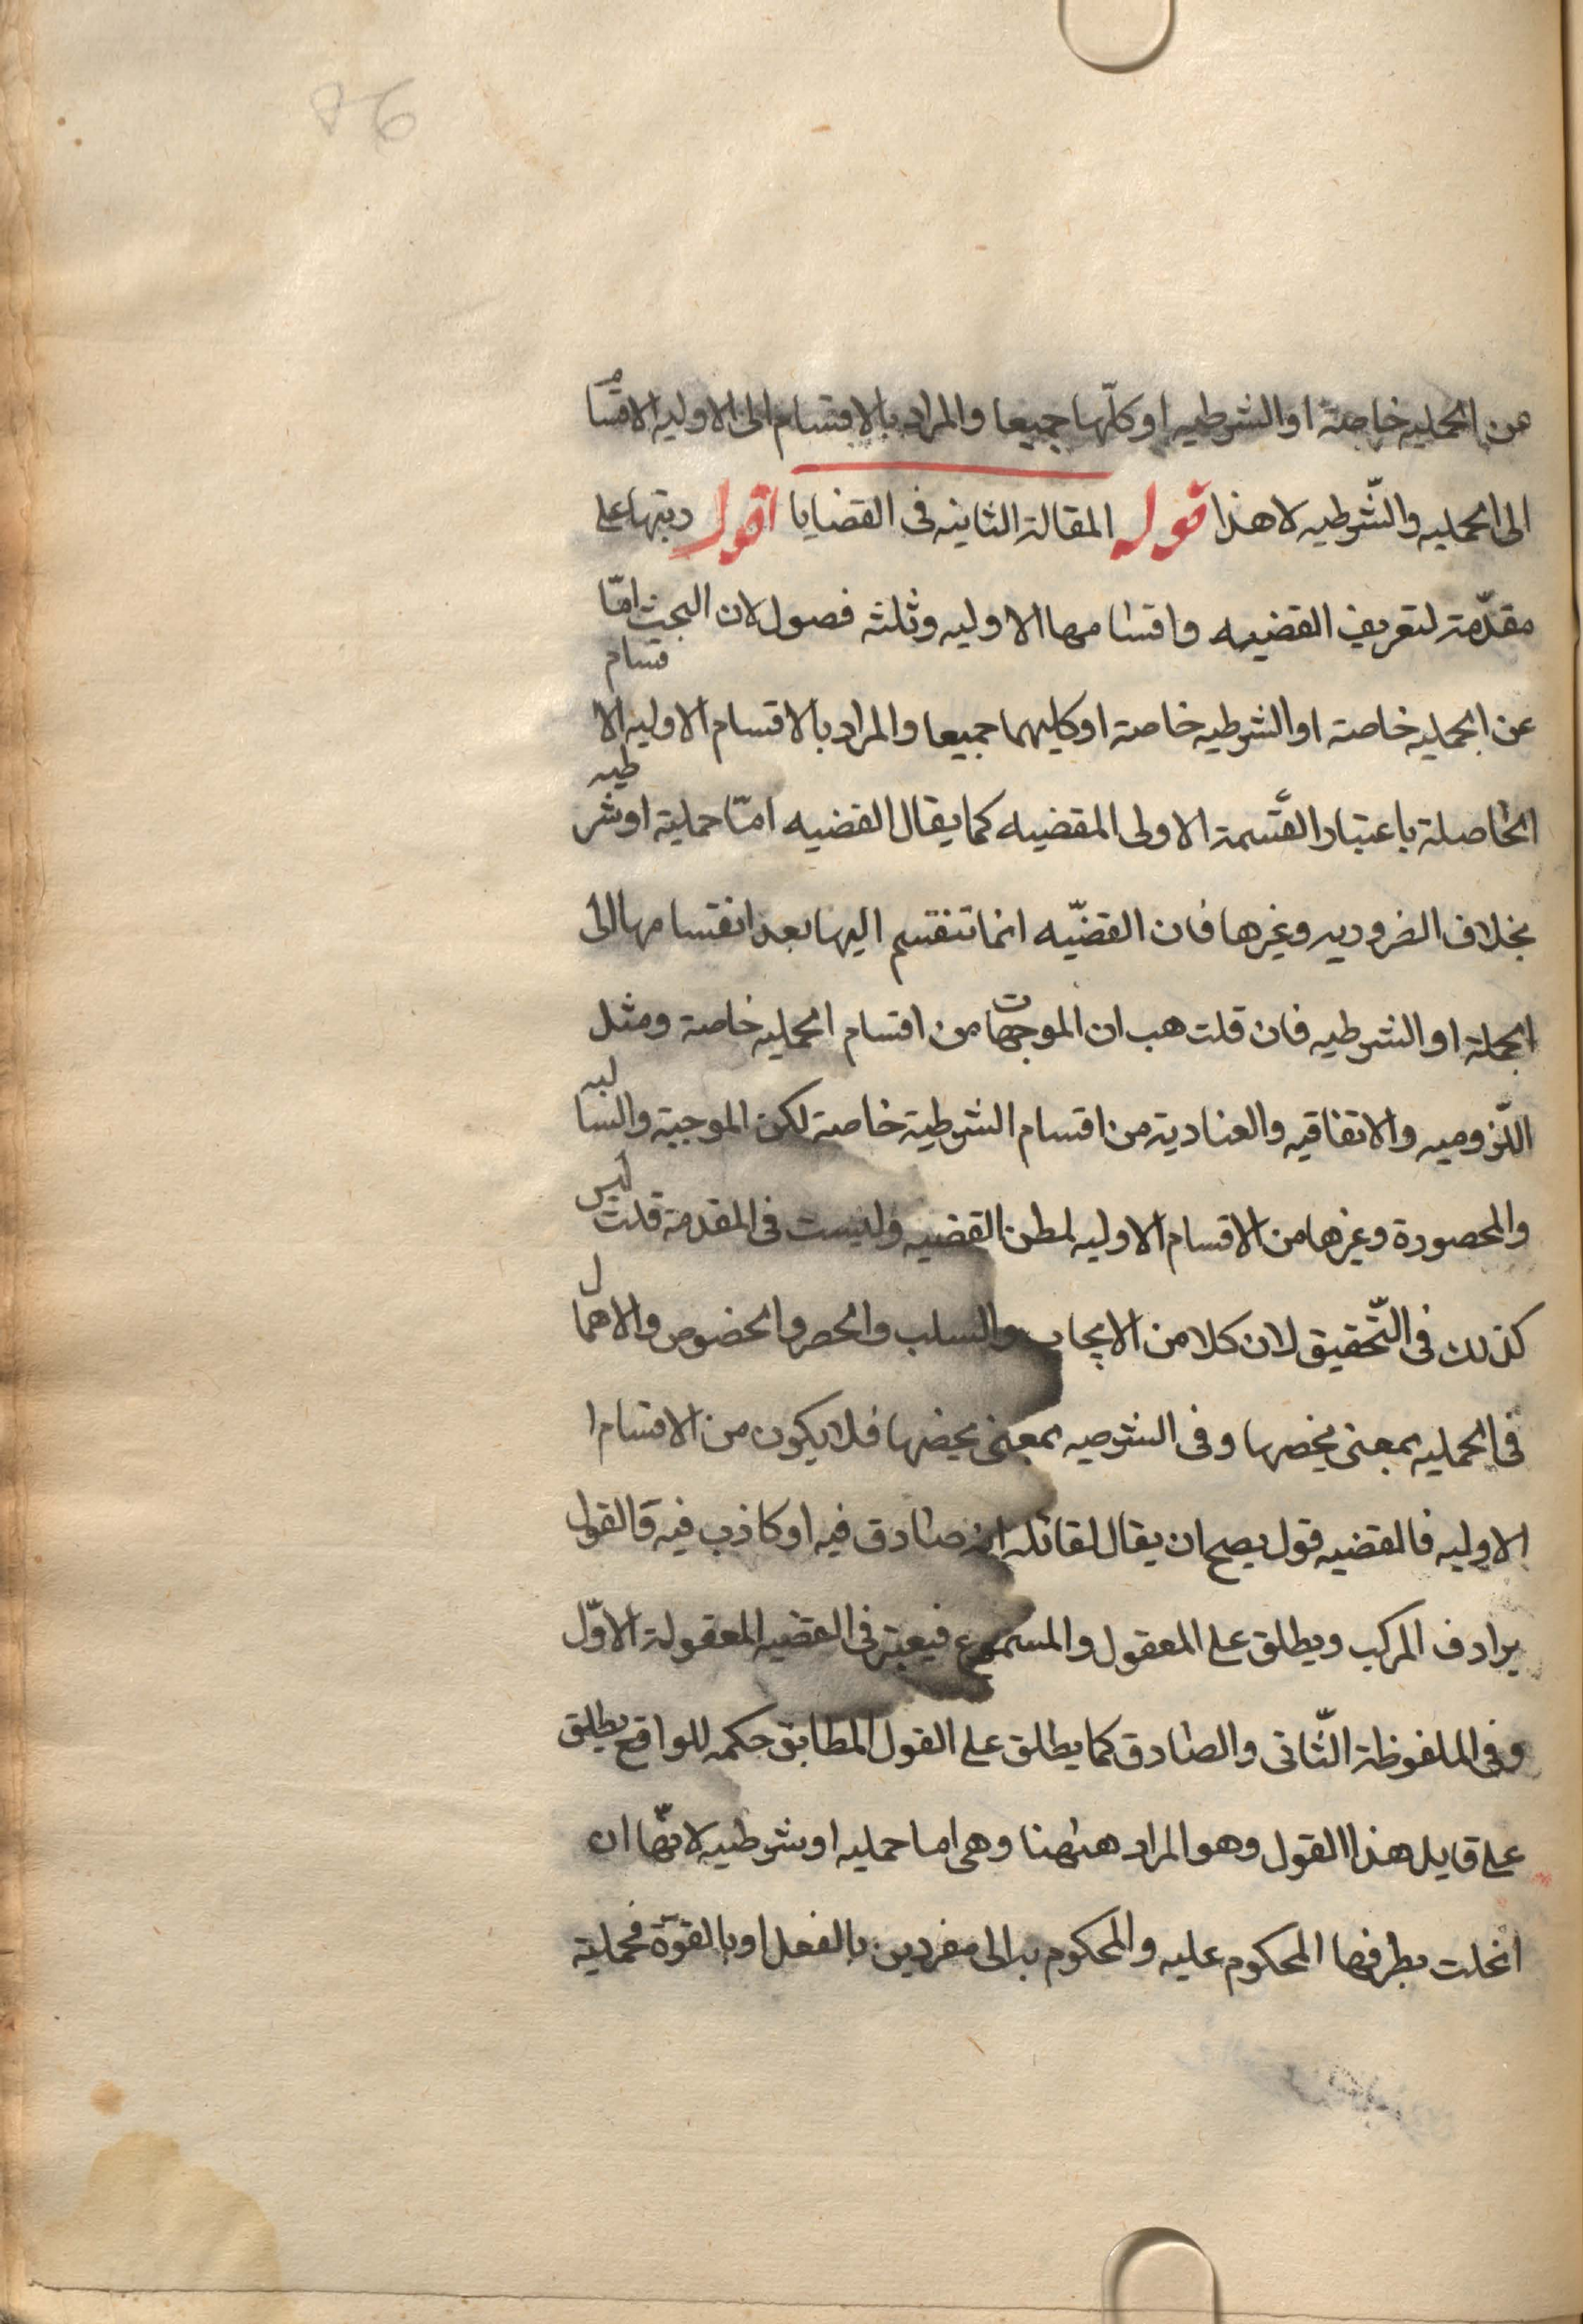 86
من الحمليه خاصة او الشرطيه او كلّها جميعا والمراد بالاقتسام الى الاوليه الاقتسام
الى الحمليه والشّرطيه لا هذا قوله المقالة الثانيه فى القضايا اقول رتبها على
مقدّمة لتعريف القضيه واقسامها الاوليه وثلثه فصول لان البحث امّا
عن الحمليه خاصة او الشرطيه خاصة او كليهما جميعا والمراد بالاقسام الاوليه الاقسام
الحاصلة باعتبار القسمة الاولى المقضيه كما يقال القضيه امّا حملية او شرطيه
بخلاف الضروريه وغيرها فان القضّيه انما تنقسم اليها بعد انقسامها الى
الجملة او الشرطيه فان قلت هب ان الموجهات من اقسام الحمليه خاصة ومثل
اللّزوميه والاتفاقيه والعنادية من اقسام الشرطية خاصة لكن الموجبة والسالبه
والمحصورة وغيرها من الاقسام الاوليه لمطلق القضيه وليست فى المقدمة قلت ليس
كذلك فى التّحقيق لان كلا من الايجاب والسلب والحصر والخصوص والاهمال
فى الحمليه بمعنى يخصها وفى الشرصيه بمعنى يخصها فلا يكون من الاقسام ا
الاوليه فالقضيه قول يصح ان يقال لقائله انه صادق فيه او كاذب فيه فالقول
يرادف المركب ويطلق على المعقول والمسموع فيعتبر فى القضيه المعقولة الاوّل
وفى الملفوظة الثّانى والصادق كما يطلق على القول المطابق حكمه للواقع يطلق
على قايل هذا القول وهو المراد ههنا وهى اما حمليه او شرطيه لانّها ان
انحلت بطرفيها المحكوم عليه والمحكوم به الى مفردين بالفعل او بالقوّة فحملية